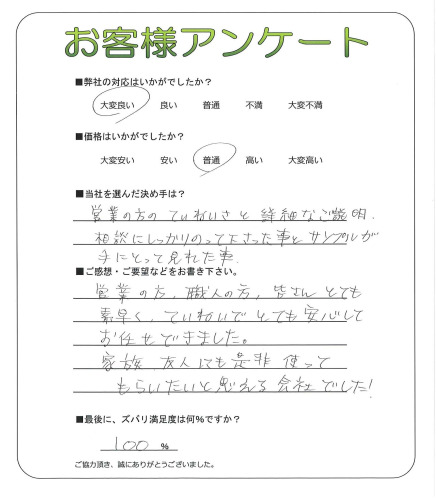 お客様アンケート
■弊社の対応はいかがでしたか?
大変良い 良い 普通 不満 大変不満
■価格はいかがでしたか?
大変安い 安い 普通 高い 大変高い
■当社を選んだ決め手は?
営業の方のていねいさと詳細なご説明.
相談にしっかりのって下さった事とサンプルが
手にとって見れた事.
■ご感想・ご要望などをお書き下さい。
営業の方,職人の方,皆さんとても
素早く、ていねいでとても安心して
お任せできました。
家族、友人にも是非 使って
もらいたいと思える会社でした!
■最後に、ズバリ満足度は何%ですか?
100 %
ご協力頂き、誠にありがとうございました。